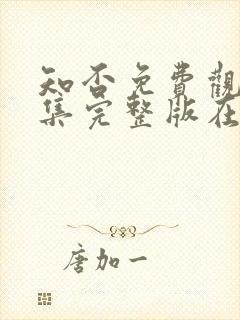 知否免費觀
集完整版在
唐加一